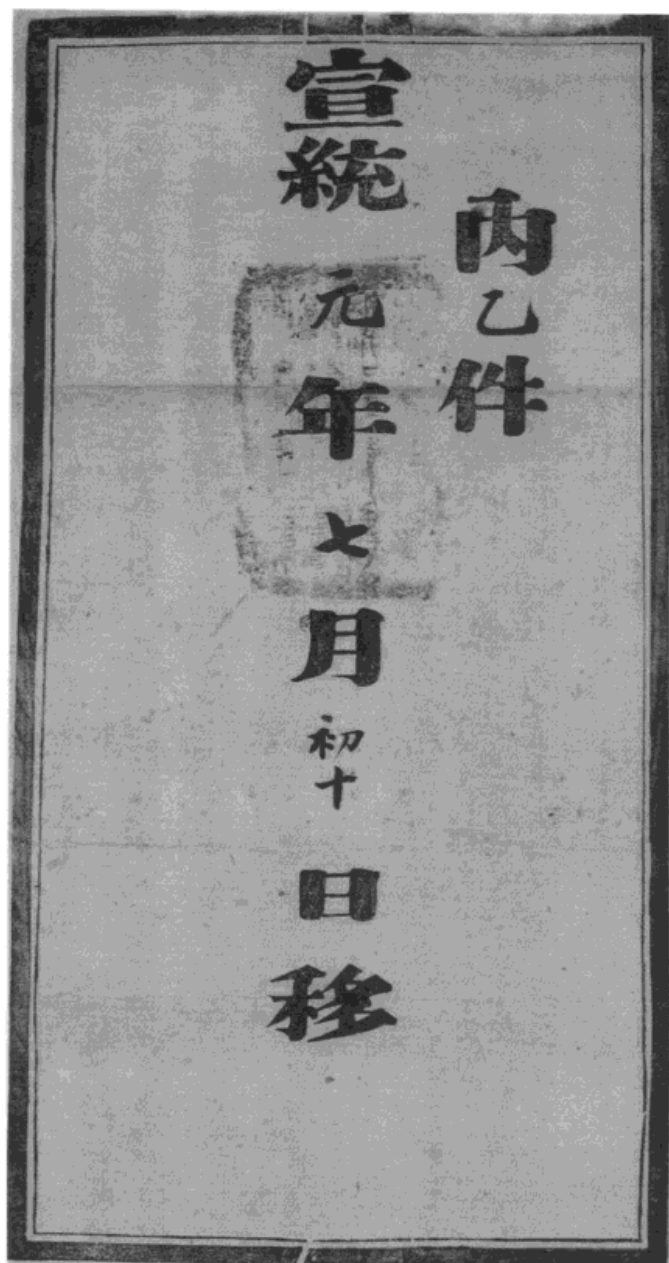 内乙件
宣統元年七月初十日移